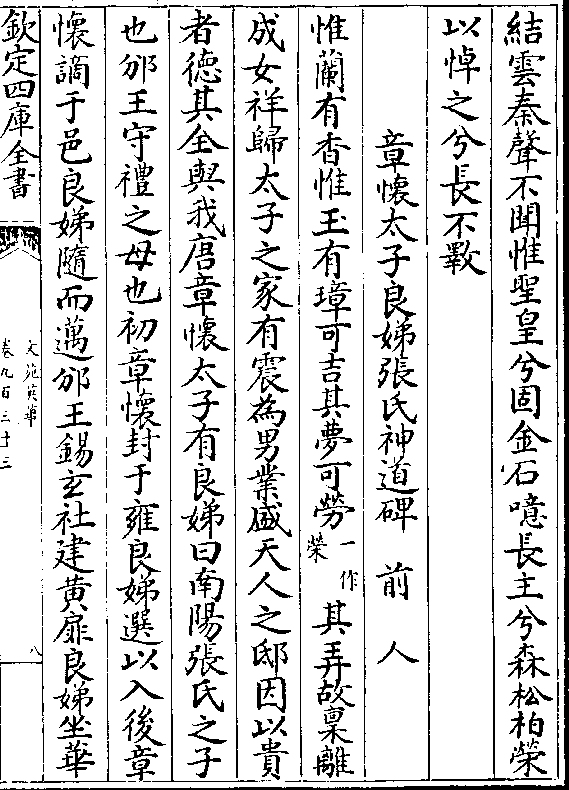 結雲秦聲不聞惟聖皇兮固金石噫長主兮森松柏榮
以悼之兮長不斁
章懷太子良娣張氏神道碑 前人
惟蘭有香惟玉有璋可吉其夢可勞一作榮其弄故稟離
成女祥歸太子之家有震為男業盛天人之邸因以貴
者德其全與我唐章懷太子有良娣曰南陽張氏之子
也邠王守禮之母也初章懷封于雍良娣選以入後章
懷謫于邑良娣隨而邁邠王錫玄社建黄扉良娣坐華
欽定四庫全書
文苑英華
卷九百三十三
八